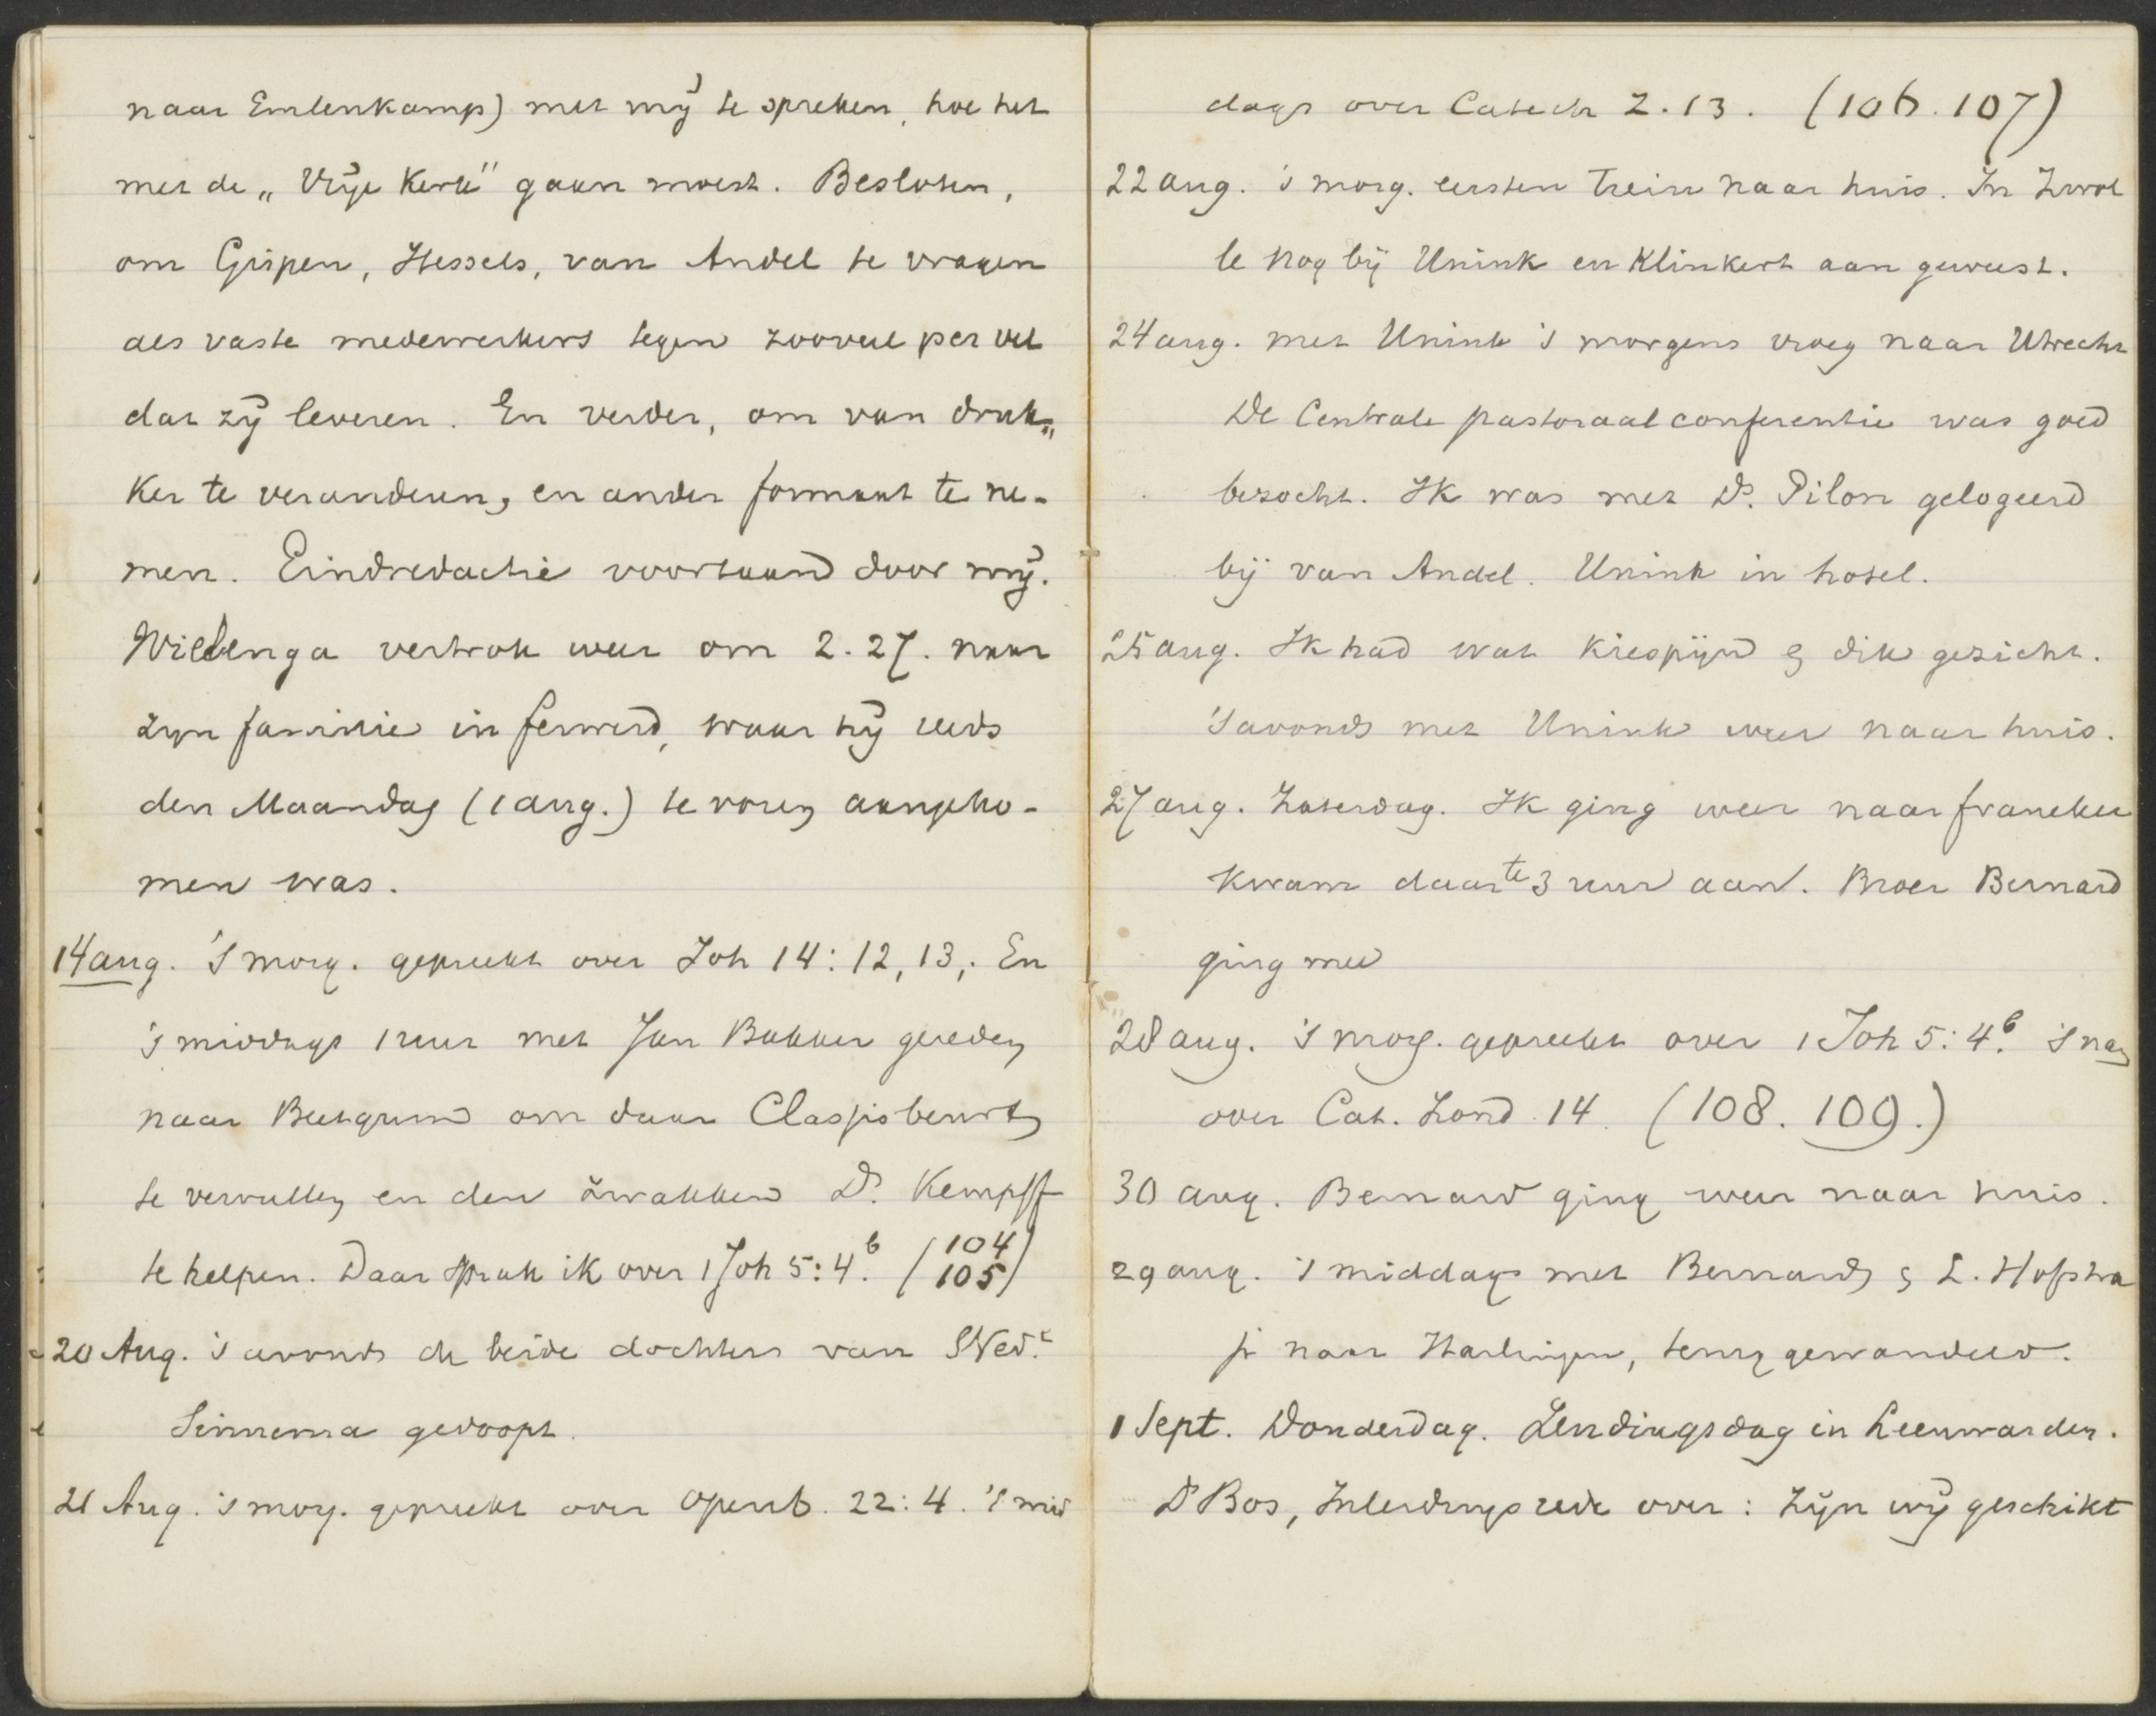 naar Emlenkamp) met mij te spreken, hoe het
met de „Vrije Kerk" gaan moest. Besloten,
om Gispen, Hessels, van Andel te vragen
als vaste medewerkers tegen zooveel per vel
dat zij leveren. En verder, om van druk„
ker te veranderen, en ander formaat te ne-
men. Eindredactie voortaan door mij.
Wielenga vertrok weer om 2.27. naar
zijn familie in Ferwerd, waar hij reeds
den Maandag (1 aug.) te voren aangeko-
men was.
14 aug. 's morg. gepreekt over Joh 14: 12, 13,. En
's middags 1 uur met Jan Bakker gereden
naar Beetgum om daar Classisbeurt
te vervullen en den zwakken Ds. Kempff
te helpen. Daar sprak ik over 1 Joh 5: 4b. (104
105)
20 Aug. 's avonds de beide dochters van SWed.e
Sinnema gedoopt.
21 Aug. 's morg. gepreekt over Openb. 22: 4. 's mid
dags over Catech Z. 13. (106. 107)
22 aug. 's morg. eersten trein naar huis. In Zwol
le nog bij Unink en Klinkert aan geweest.
24 aug. met Unink 's morgens vroeg naar Utrecht
De Centrale pastoraalconferentie was goed
bezocht. Ik was met Ds. Pilon gelogeerd
bij van Andel. Unink in hotel.
25 aug. Ik had wat kiespijn & dik gezicht.
's avonds met Unink weer naar huis.
27 aug. Zaterdag. Ik ging weer naar Franeker
kwam daar te 3 uur aan. Broer Bernard
ging mee
28 aug. 's morg. gepreekt over 1 Joh 5: 4b. 's nam
over Cat. Zond. 14. (108. 109.)
30 aug. Bernard ging weer naar huis.
29 aug. 's middags met Bernard & L. Hofstra
Jr naar Harlingen, terug gewandeld.
1 Sept. Donderdag. Zendingsdag in Leeuwarden.
Ds Bos, Inleidingsrede over: Zijn wij geschikt